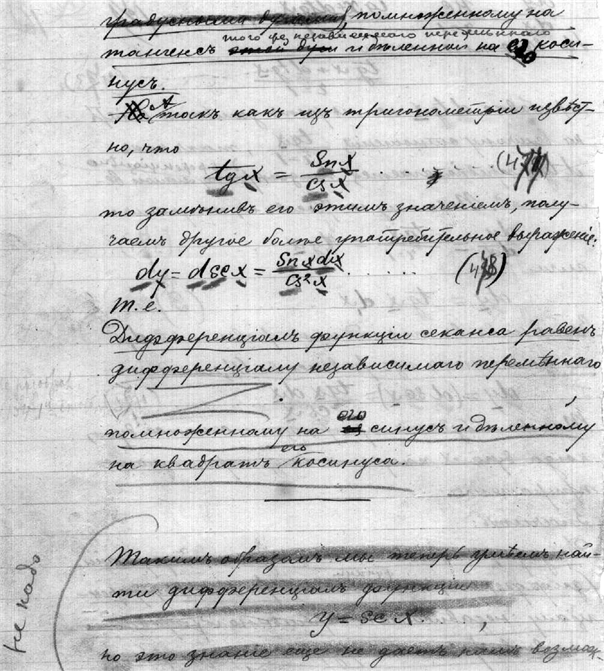 помноженному на
того же независимаго переменнаго
тангенсъ и деленной на его коси-
нусъ.
А такъ какъ изъ тригонометріи извѣст-
но, что
tg x = Sn x / Cs x . . . . .
то замѣнивъ его этимъ значеніемъ, полу-
чаемъ другое болѣе употребительное выраженіе:
dy = d sc x = Sn x dx / Cs² x . . . . . (478)
т.е.
Дифференціалъ функціи секанса равенъ
дифференціалу независимаго перемѣннаго
помноженному на его синусъ и дѣленному
на квадратъ его косинуса.
Такимъ образомъ мы теперь умѣемъ най-
ти дифференціалъ функціи
y = sc x. ,
но это знаніе еще не даетъ намъ возмож-
не надо